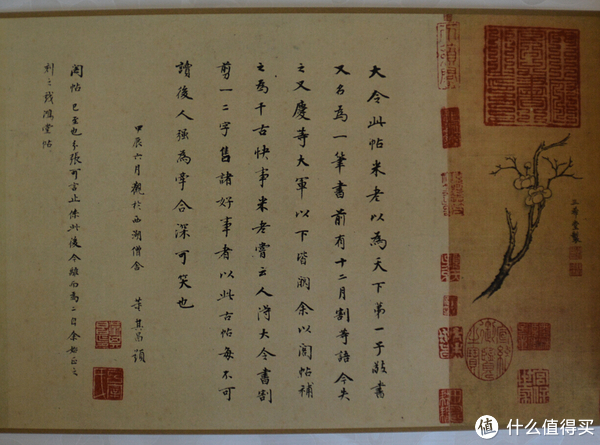 三希堂製
大令此帖米老以為天下第一子敬書
又名為一筆書前有十二月割等語今失
之又慶等大軍以下皆闕余以閣帖補
之為千古快事米老嘗云人得大令書割
剪一二字售諸好事者以此古帖每不可
讀後人強為牽合深可笑也
甲辰六月觀於西湖僧舍 董其昌題
閣帖已至也分張可言止係此後今離而為二自余始正之
刻之戲鴻堂帖
值 什么值得买